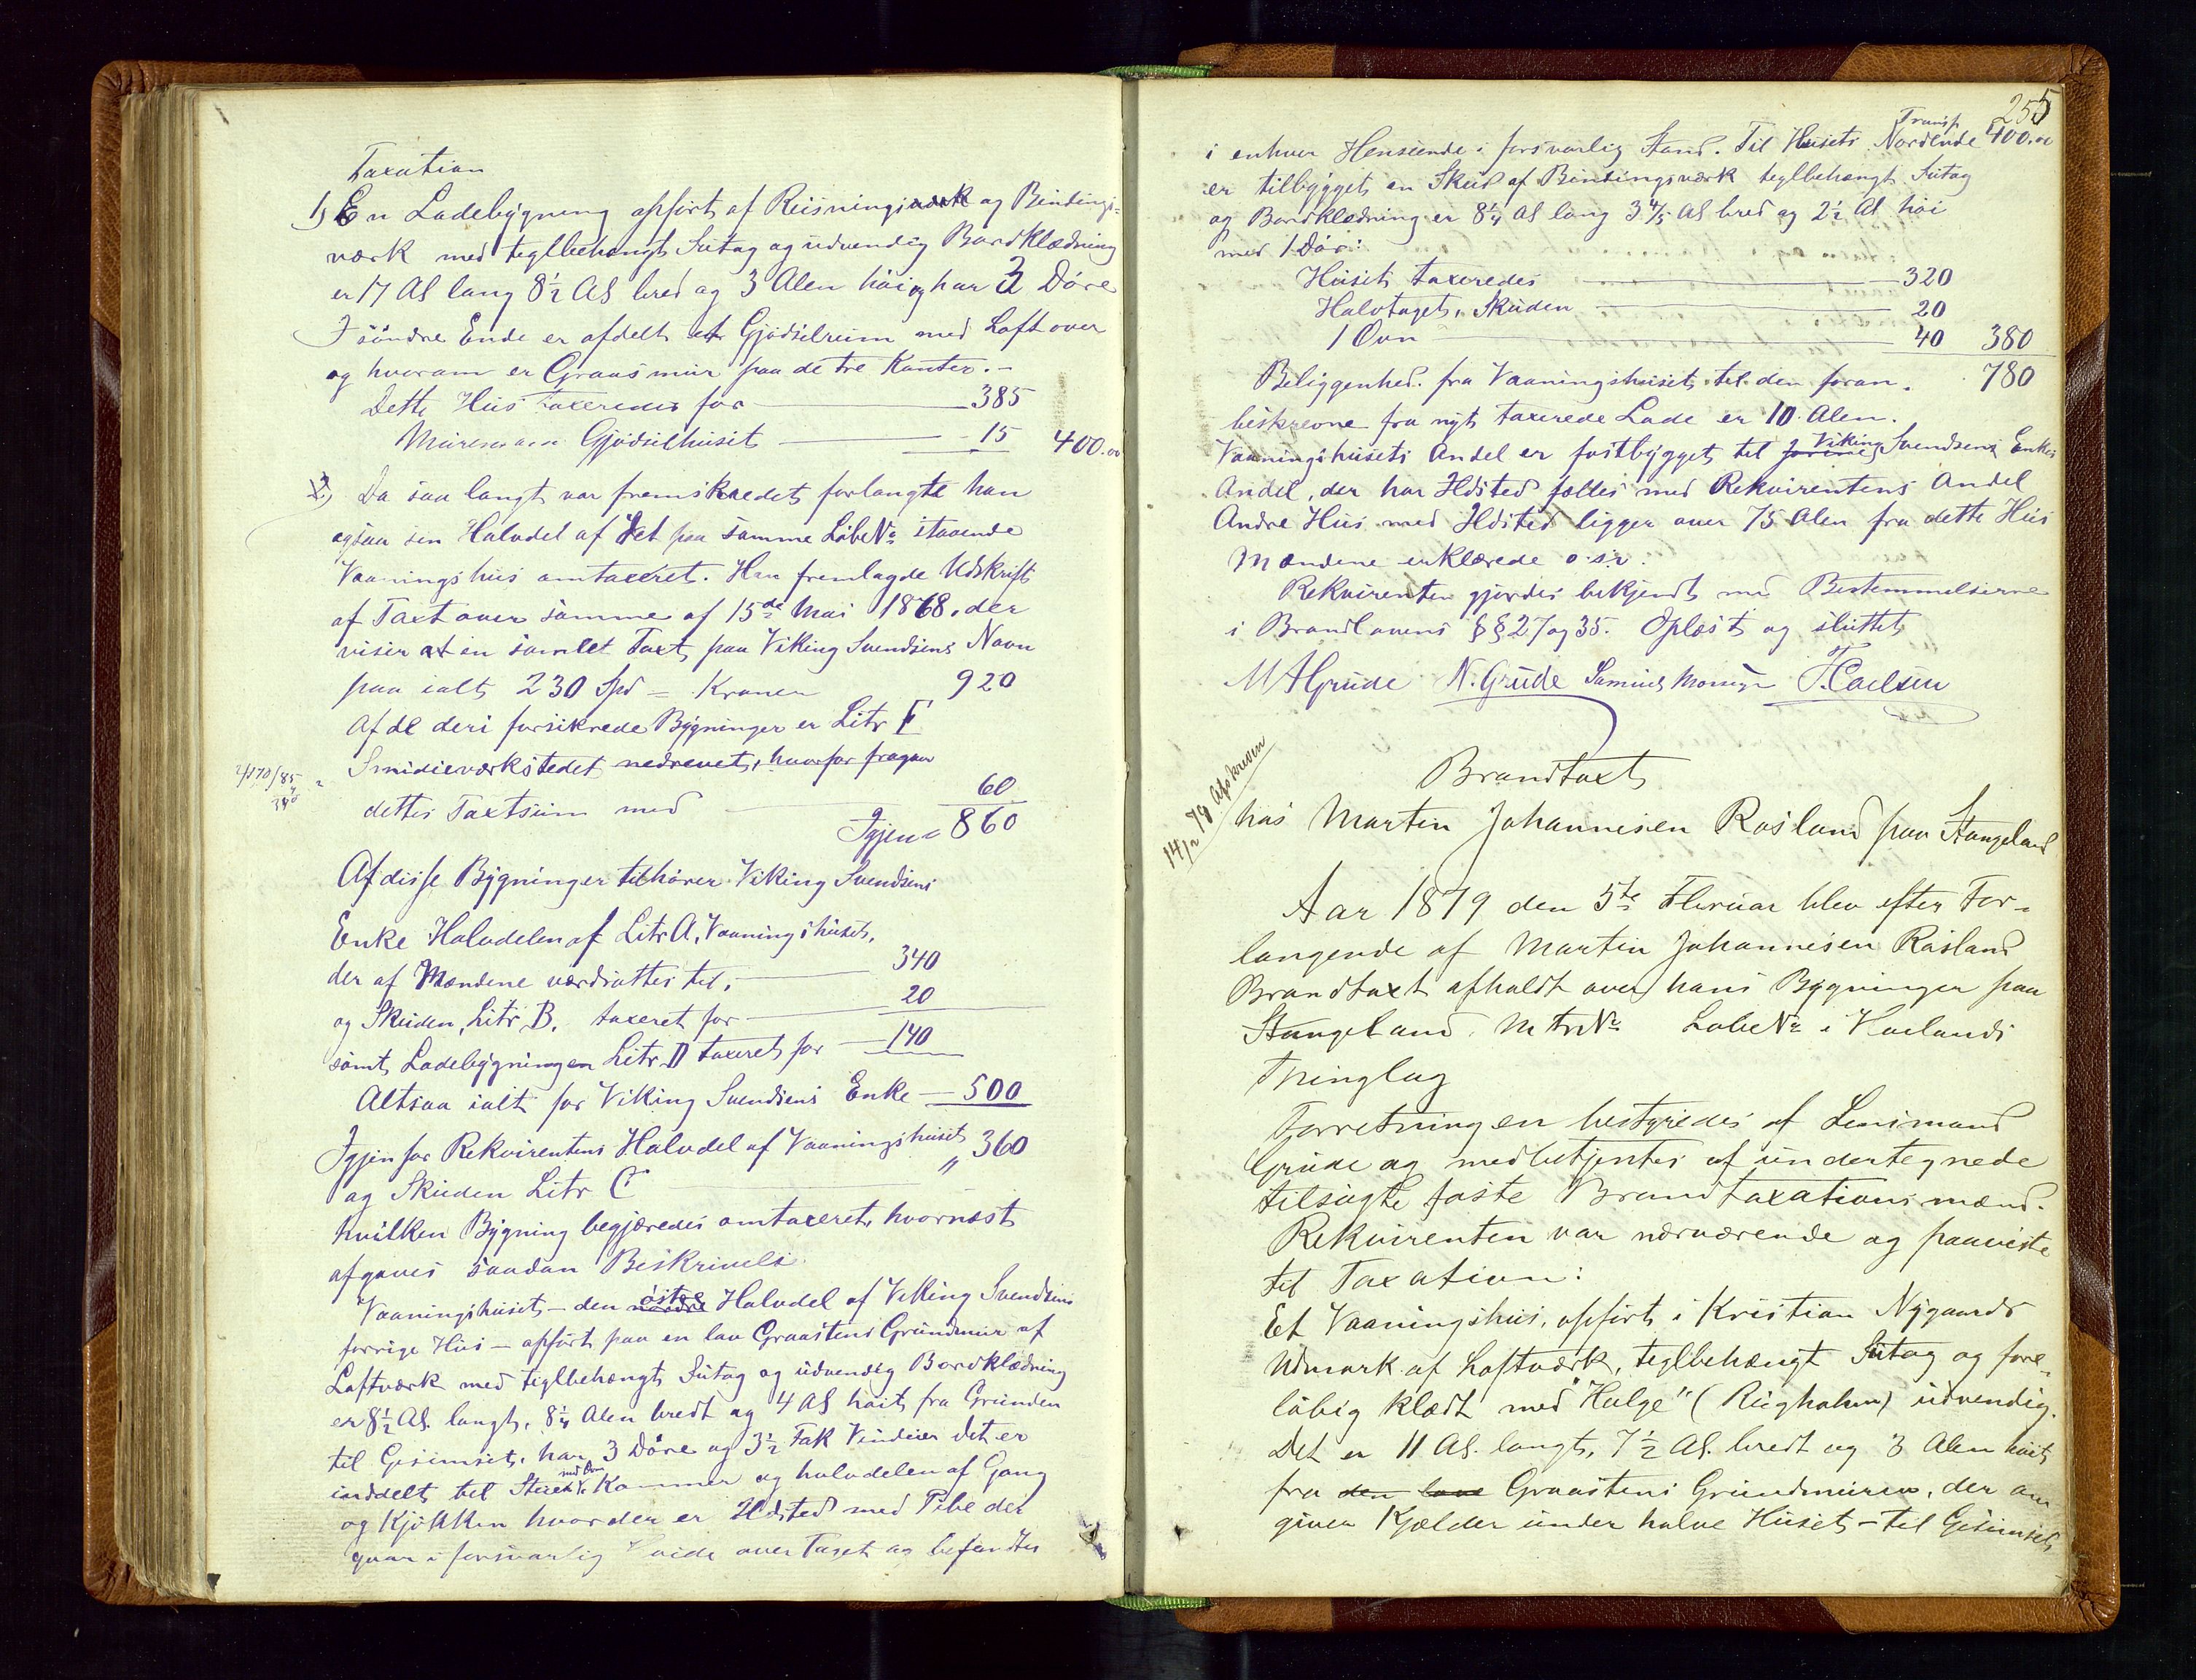 Taxation
1) En Ladebygning opført af Reisningsværk og Bindings-
værk med teglbehængt Sutag og udvendig Bordklædning
er 17 Al lang 8½ Al bred og 3 Alen høi og har 3 Døre
I søndre Ende er afdelt et Gjødselrum med Loft over
og hvorom er Graasmur paa de tre Kanter. -
Dette Hus taxeredes for 385
Murene om Gjødselhuset 15 400.00
2) Da saa langt var fremskredet forlangte han
ogsaa sin Halvdel af det paa samme LøbeNr staaende
Vaaningshus omtaxeret. Han fremlagde Udskrift
af Taxt over samme af 15de Mai 1868, der
viser at en samlet Taxt paa Viking Svendsens Navn
paa ialt 230 Spd = Kroner 920
Af de deri forsikrede Bygninger er Litr E
Smidieværkstedet nedrevet, hvorfor fragaar
dettes Taxtsum med 60
Igjen = 860
Af disse Bygninger tilhører Viking Svendsens
Enke Halvdelen af Litr A, Vaaningshuset,
der af Mændene værdsattes til, 340
og Skuden, Litr B. taxeret for 20
samt Ladebygningen Litr D taxeret for 140
Altsaa ialt for Viking Svendsens Enke 500
Igjen for Rekvirentens Halvdel af Vaaningshuset 360
og Skuden Litr C "
hvilken Bygning begjæredes omtaxeret, hvornæst
afgaves saadan Beskrivelse
Vaaningshuset - den nordre østre Halvdel af Viking Svendsens
forrige Hus - opført paa en lav Graastens Grundmur af
Loftværk med teglbehængt Sutag og udvendig Bordklædning
er 8½ Al. langt, 8¼ Alen bredt og 4 Al høit fra Grunden
til Gesimset, har 3 Døre og 3½ Fak Vinduer det er
inddelt til Stue med Ovn, Kammer og halvdelen af Gang
og Kjøkken hvor der er Ildsted med Pibe der
gaar i forsvarlig Høide over Taget og befandtes
255
Transp 400.00
i enhver Henseende i forsvarlig Stand. Til Husets Nordende
er tilbygget en Skud af Bindingsværk teglbehængt Sutag
og Bordklædning er 8¼ Al lang 3⅘ Al bred og 2½ Al høi
med 1 Dør:
Huset taxeredes 320
Halvtaget, Skuden 20
1 Ovn 40 380
Beliggenhed. fra Vaaningshuset til den foran- 780
beskrevne fra nyt taxerede Lade er 10 Alen.
Vaaningshusets Andel er fastbygget til Viking Svendsens Enkes
Andel, der har Ildsted fælles med Rekvirentens Andel
Andre Hus med Ildsted ligger over 75 Alen fra dette Hus
Mændene erklærede o.s.v.
Rekvirenten gjordes bekjendt med Bestemmelserne
i Brandlovens §§ 27 og 35. Oplæst og sluttet
M A Grude N. Grude Samuel T. Carlsen
14/2 79 Afskreven
Brandtaxt
hos Martin Johannesen Rosland paa Stangeland
Aar 1879 den 5te Februar blev efter For-
langende af Martin Johannesen Rosland
Brandtaxt afholdt over hans Bygninger paa
Stangeland. MtrNr LøbeNr i Haalands
Thinglag
Forretningen bestyredes af Lensmand
Grude og medbetjentes af undertegnede
tilsagte faste Brandtaxationsmænd.
Rekvirenten var nærværende og paaviste
til Taxation:
Et Vaaningshus, opført i Kristian Nygaards
Udmark af Loftværk, teglbehængt Sutag og fore-
løbig klædt med "Halge" (Rughalm) udvendig.
Det er 11 Al. langt, 7½ Al. bredt og 3 Alen høit
fra den lave Graastens Grundmuren, der om
giver Kjælder under halve Huset - til Gesimset,